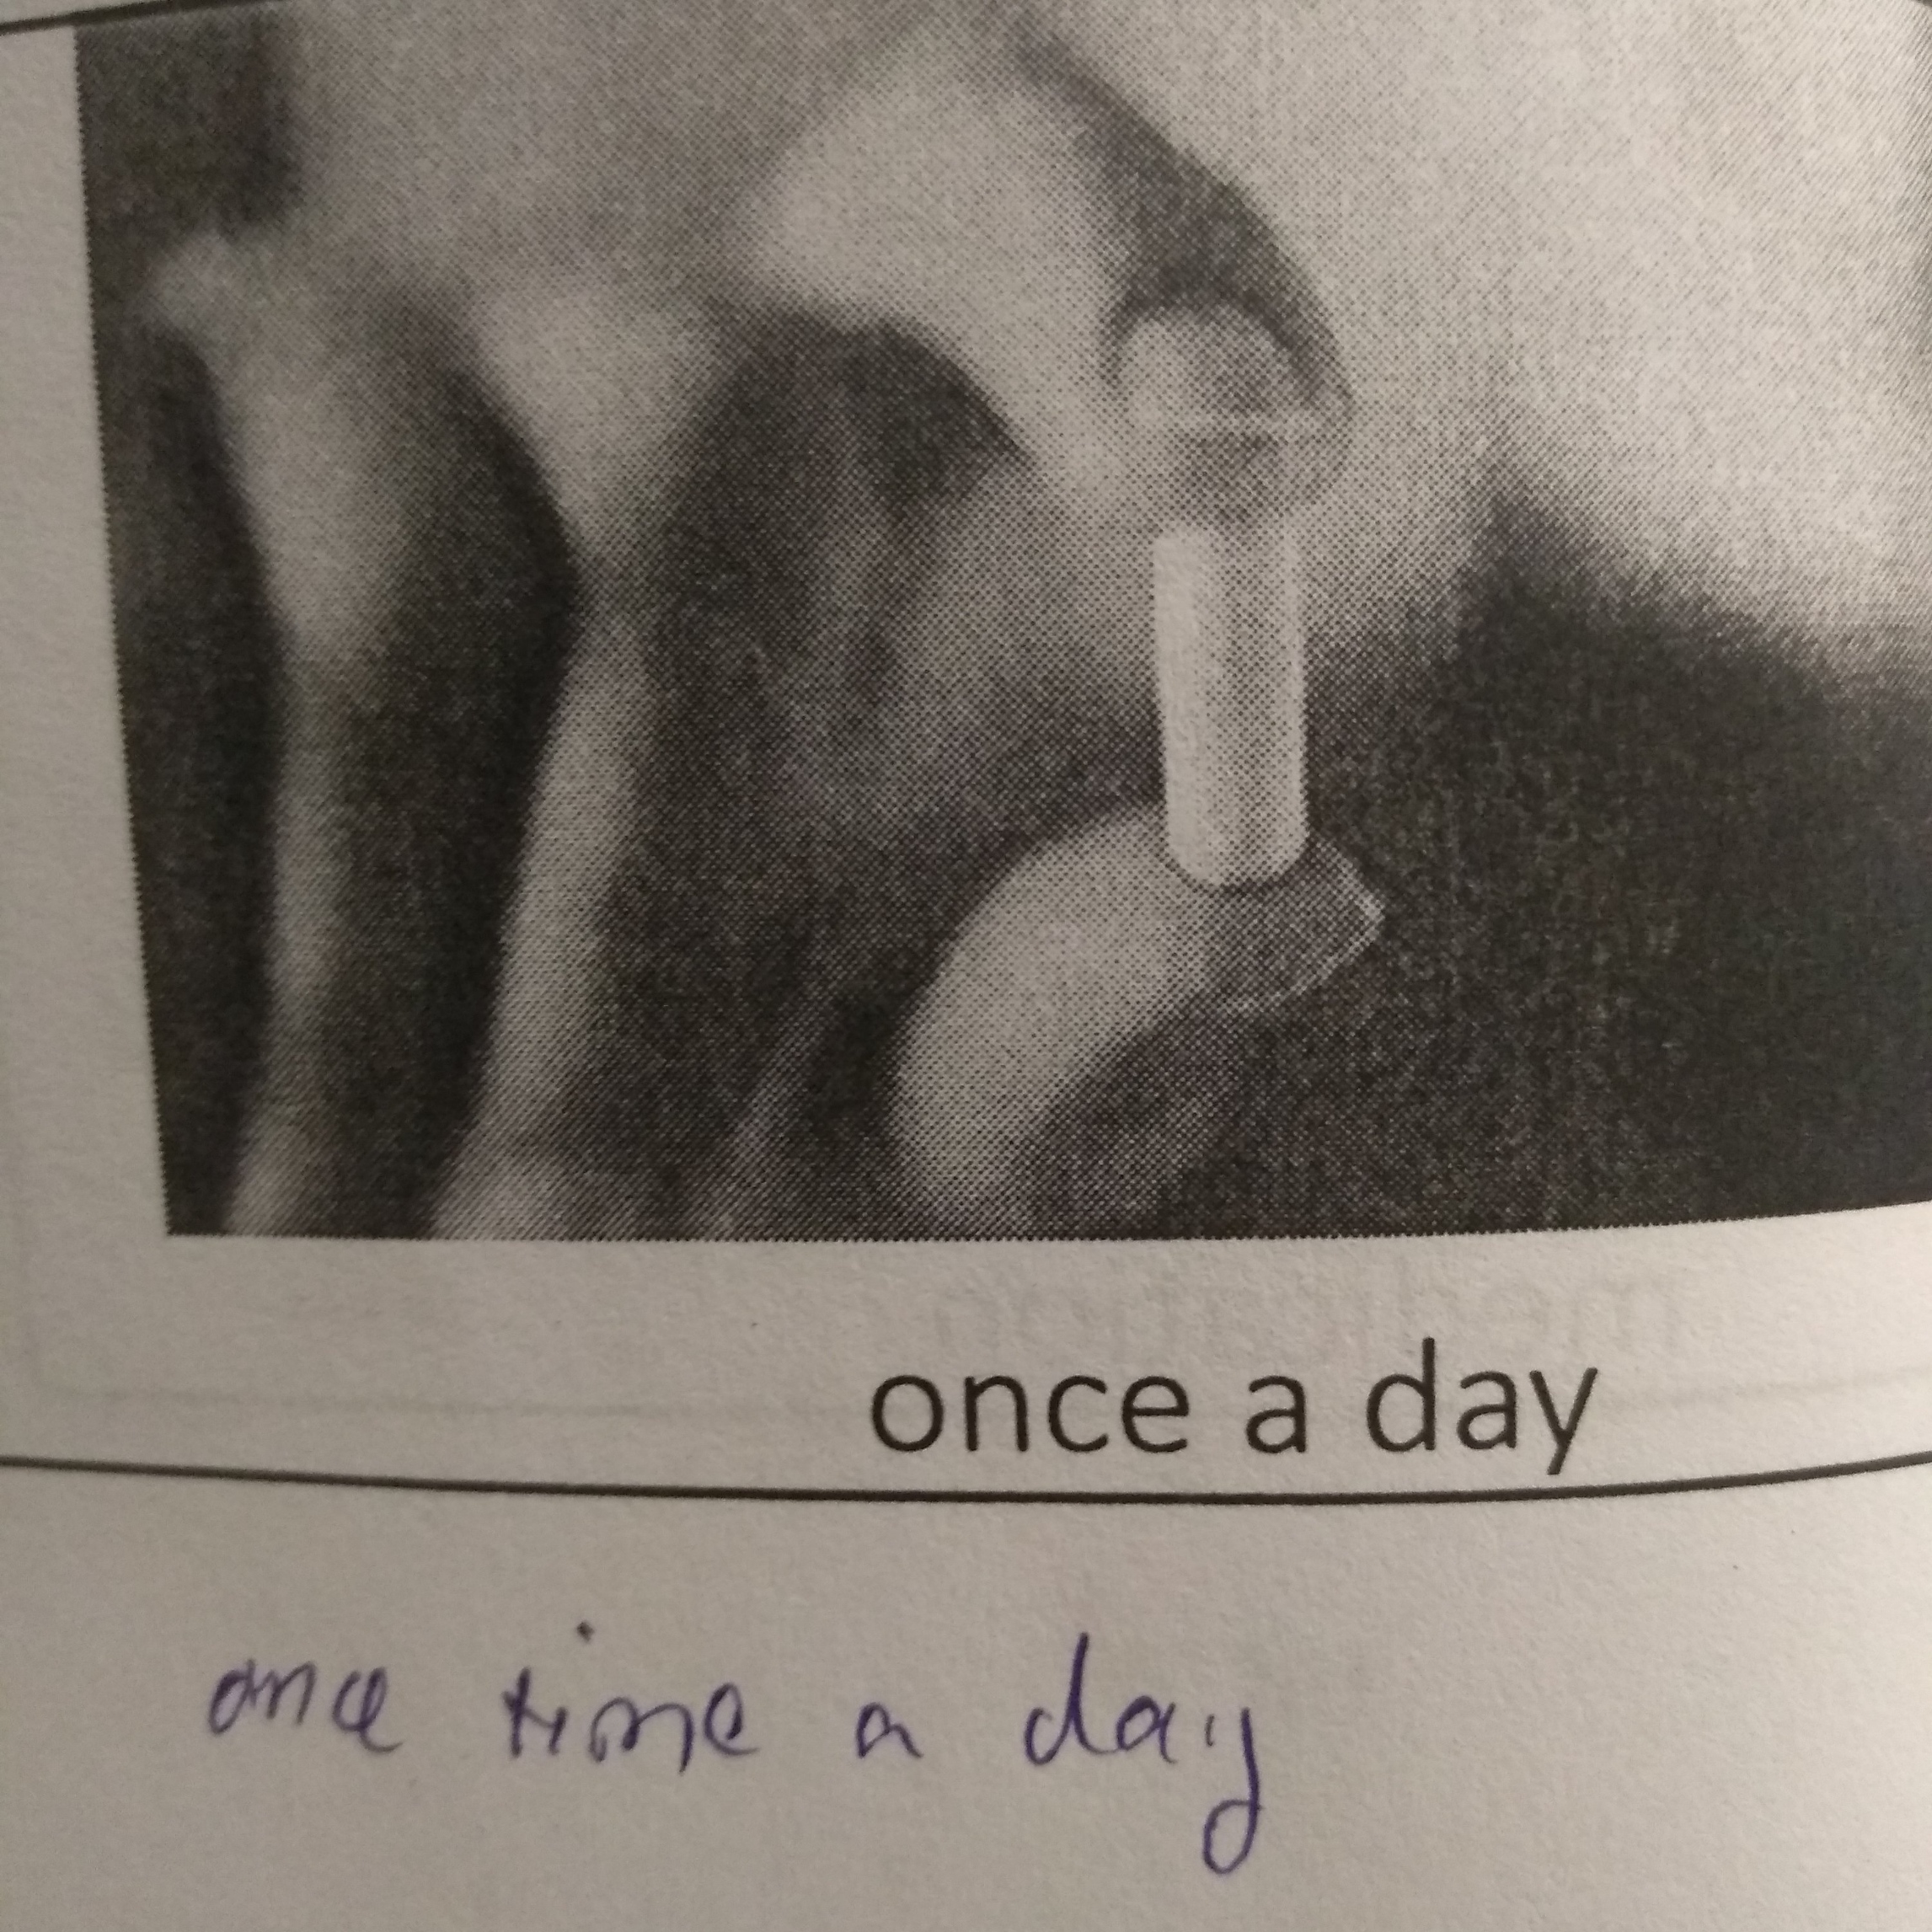 once a day
once time a day